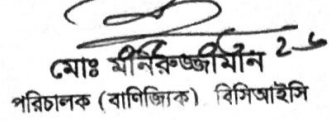 মোঃ মনিরুজ্জামান
পরিচালক (বাণিজ্যিক) বিসিআইসি